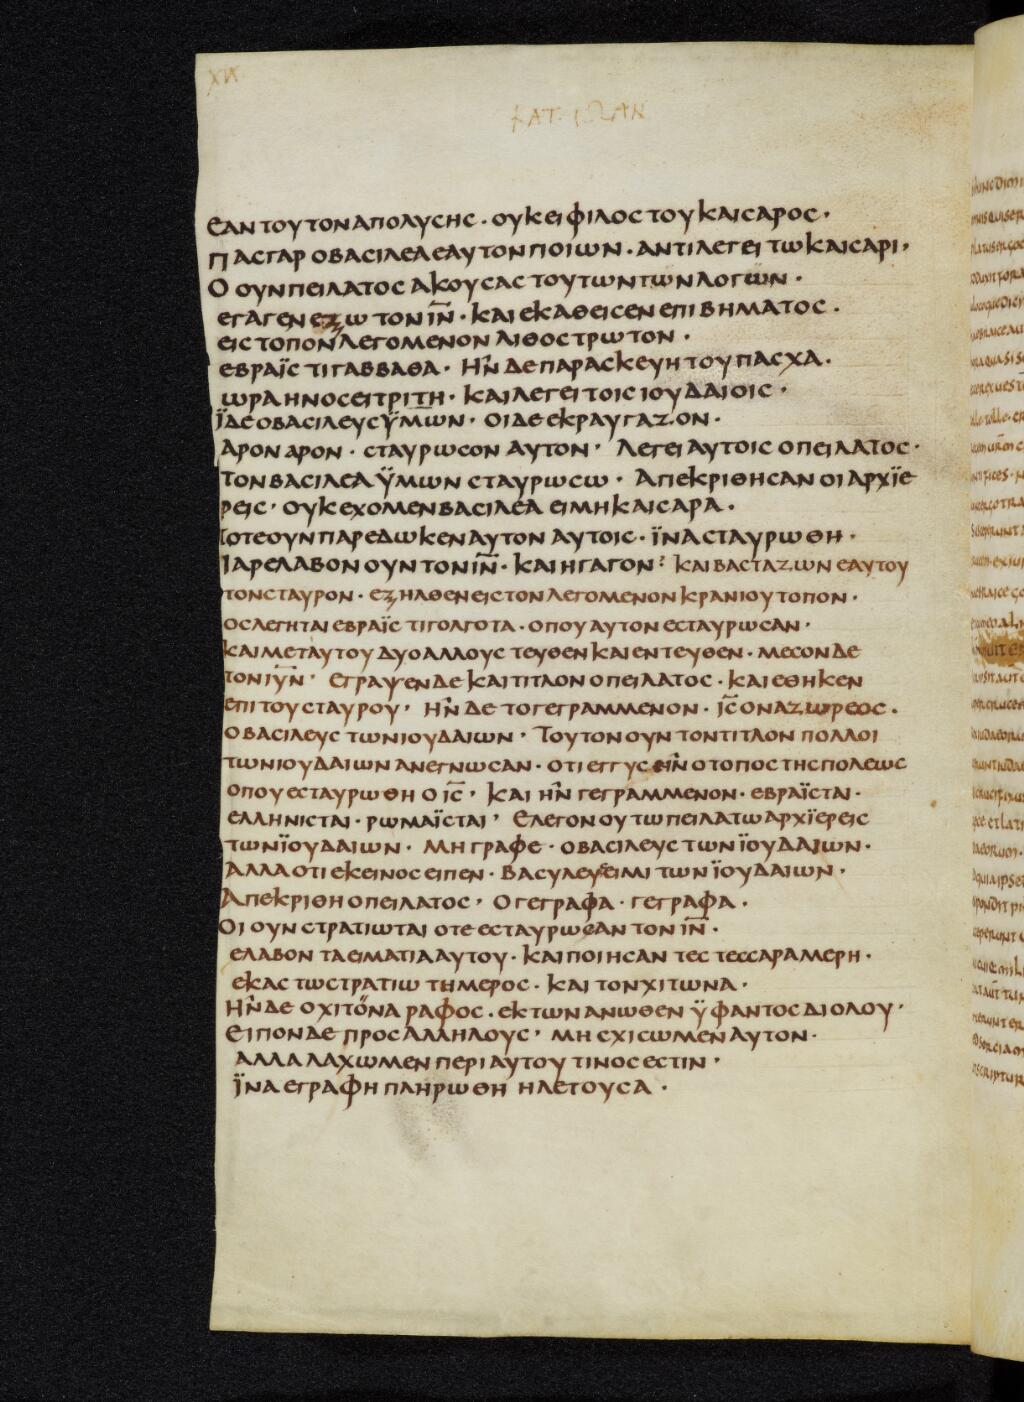 ΚΑΤ· ΙΩΑΝ
ΕΑΝ ΤΟΥΤΟΝ ΑΠΟΛΥCΗC · ΟΥΚ ΕΙ ΦΙΛΟC ΤΟΥ ΚΑΙCΑΡΟC ·
ΠΑC ΓΑΡ Ο ΒΑCΙΛΕΑ ΕΑΥΤΟΝ ΠΟΙΩΝ · ΑΝΤΙΛΕΓΕΙ ΤΩ ΚΑΙCΑΡΙ ·
Ο ΟΥΝ ΠΕΙΛΑΤΟC ΑΚΟΥCΑC ΤΟΥΤΩΝ ΤΩΝ ΛΟΓΩΝ ·
ΕΓΑΓΕΝ ΕΞΩ ΤΟΝ ΙΝ̅ · ΚΑΙ ΕΚΑΘΕΙCΕΝ ΕΠΙ ΒΗΜΑΤΟC ·
ΕΙC ΤΟΠΟΝ ΛΕΓΟΜΕΝΟΝ ΛΙΘΟCΤΡΩΤΟΝ ·
ΕΒΡΑΪC ΤΙ ΓΑΒΒΑΘΑ · ΗΝ ΔΕ ΠΑΡΑCΚΕΥΗ ΤΟΥ ΠΑCΧΑ ·
ΩΡΑ ΗΝ ΟCΕΙ ΤΡΙΤΗ · ΚΑΙ ΛΕΓΕΙ ΤΟΙC ΙΟΥΔΑΙΟΙC ·
ΪΔΕ Ο ΒΑCΙΛΕΥC ΫΜΩΝ · ΟΙ ΔΕ ΕΚΡΑΥΓΑΖΟΝ ·
ΑΡΟΝ ΑΡΟΝ · CΤΑΥΡΩCΟΝ ΑΥΤΟΝ · ΛΕΓΕΙ ΑΥΤΟΙC Ο ΠΕΙΛΑΤΟC ·
ΤΟΝ ΒΑCΙΛΕΑ ΫΜΩΝ CΤΑΥΡΩCΩ · ΑΠΕΚΡΙΘΗCΑΝ ΟΙ ΑΡΧΪΕ
ΡΕΙC · ΟΥΚ ΕΧΟΜΕΝ ΒΑCΙΛΕΑ ΕΙ ΜΗ ΚΑΙCΑΡΑ ·
ΤΟΤΕ ΟΥΝ ΠΑΡΕΔΩΚΕΝ ΑΥΤΟΝ ΑΥΤΟΙC · ΪΝΑ CΤΑΥΡΩΘΗ ·
ΠΑΡΕΛΑΒΟΝ ΟΥΝ ΤΟΝ ΙΝ̅ · ΚΑΙ ΗΓΑΓΟΝ · ΚΑΙ ΒΑCΤΑΖΩΝ ΕΑΥΤΟΥ
ΤΟΝ CΤΑΥΡΟΝ · ΕΞΗΛΘΕΝ ΕΙC ΤΟΝ ΛΕΓΟΜΕΝΟΝ ΚΡΑΝΙΟΥ ΤΟΠΟΝ ·
ΟC ΛΕΓΗΤΑΙ ΕΒΡΑΪC ΤΙ ΓΟΛΓΟΤΑ · ΟΠΟΥ ΑΥΤΟΝ ΕCΤΑΥΡΩCΑΝ ·
ΚΑΙ ΜΕΤ ΑΥΤΟΥ ΔΥΟ ΑΛΛΟΥC ΤΕΥΘΕΝ ΚΑΙ ΕΝΤΕΥΘΕΝ · ΜΕCΟΝ ΔΕ
ΤΟΝ ΙΥΝ̅ · ΕΓΡΑΨΕΝ ΔΕ ΚΑΙ ΤΙΤΛΟΝ Ο ΠΕΙΛΑΤΟC · ΚΑΙ ΕΘΗΚΕΝ
ΕΠΙ ΤΟΥ CΤΑΥΡΟΥ · ΗΝ ΔΕ ΤΟ ΓΕΓΡΑΜΜΕΝΟΝ · ΙC̅ Ο ΝΑΖΩΡΕΟC ·
Ο ΒΑCΙΛΕΥC ΤΩΝ ΙΟΥΔΑΙΩΝ · ΤΟΥΤΟΝ ΟΥΝ ΤΟΝ ΤΙΤΛΟΝ ΠΟΛΛΟΙ
ΤΩΝ ΙΟΥΔΑΙΩΝ ΑΝΕΓΝΩCΑΝ · ΟΤΙ ΕΓΓΥC ΗΝ Ο ΤΟΠΟC ΤΗC ΠΟΛΕΩC
ΟΠΟΥ ΕCΤΑΥΡΩΘΗ Ο ΙC̅ · ΚΑΙ ΗΝ ΓΕΓΡΑΜΜΕΝΟΝ · ΕΒΡΑΪCΤΑΙ ·
ΕΛΛΗΝΙCΤΑΙ · ΡΩΜΑΪCΤΑΙ · ΕΛΕΓΟΝ ΟΥ ΤΩ ΠΕΙΛΑΤΩ ΑΡΧΪΕΡΕΙC
ΤΩΝ ΪΟΥΔΑΙΩΝ · ΜΗ ΓΡΑΦΕ · Ο ΒΑCΙΛΕΥC ΤΩΝ ΪΟΥΔΑΙΩΝ ·
ΑΛΛΑ ΟΤΙ ΕΚΕΙΝΟC ΕΙΠΕΝ · ΒΑCΥΛΕΥC ΕΙΜΙ ΤΩΝ ΪΟΥΔΑΙΩΝ ·
ΑΠΕΚΡΙΘΗ Ο ΠΕΙΛΑΤΟC · Ο ΓΕΓΡΑΦΑ · ΓΕΓΡΑΦΑ ·
ΟΙ ΟΥΝ CΤΡΑΤΙΩΤΑΙ ΟΤΕ ΕCΤΑΥΡΩCΑΝ ΤΟΝ ΙΝ̅ ·
ΕΛΑΒΟΝ ΤΑ ΕΙΜΑΤΙΑ ΑΥΤΟΥ · ΚΑΙ ΠΟΙΗCΑΝ ΤΕC ΤΕCCΑΡΑ ΜΕΡΗ ·
ΕΚΑCΤΩ CΤΡΑΤΙΩΤΗ ΜΕΡΟC · ΚΑΙ ΤΟΝ ΧΙΤΩΝΑ ·
ΗΝ ΔΕ Ο ΧΙΤΟΝΑ ΡΑΦΟC · ΕΚ ΤΩΝ ΑΝΩΘΕΝ ΫΦΑΝΤΟC ΔΙ ΟΛΟΥ ·
ΕΙΠΟΝ ΔΕ ΠΡΟC ΑΛΛΗΛΟΥC · ΜΗ CΧΙCΩΜΕΝ ΑΥΤΟΝ ·
ΑΛΛΑ ΛΑΧΩΜΕΝ ΠΕΡΙ ΑΥΤΟΥ ΤΙΝΟC ΕCΤΙΝ ·
ΪΝΑ Ε ΓΡΑΦΗ ΠΛΗΡΩΘΗ Η ΛΕΓΟΥCΑ ·